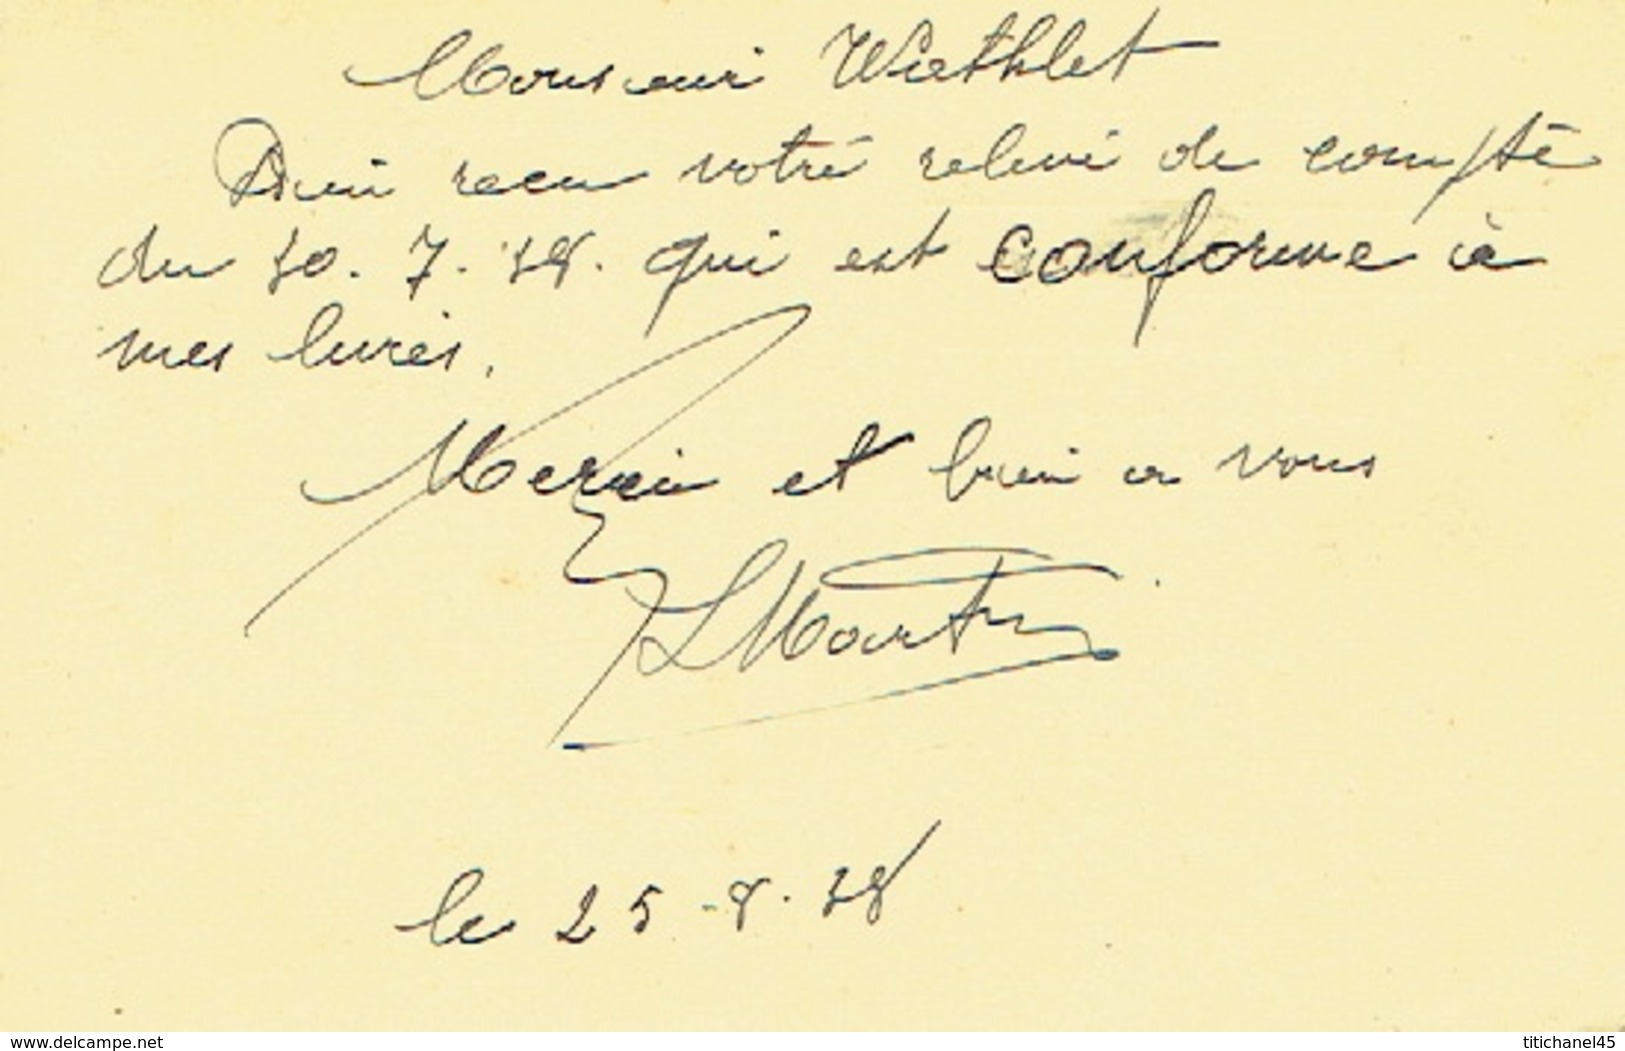 Monsieur Wathlet
Bien reçu votre relevé de compte
du 30. 7. 38. qui est conforme à
mes livres.
Merci et bien a vous
L Martin
le 25 - 8. 38
www.delcampe.net
titichanel45